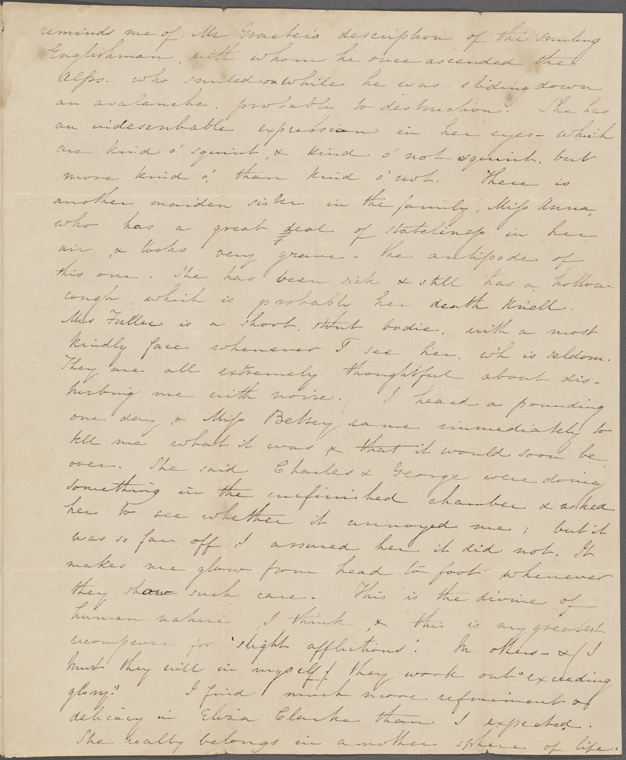 reminds me of Mr Graeter's description of the smiling
Englishman, with whom he once ascended the
Alps. who smiled on while he was sliding down
an avalanche, probable to destruction. She has
an indescribable expression in her eyes - which
are kind o' squint, & kind o' not squint, but
more kind o', than kind o' not. There is
another maiden sister in the family, Miss Anna,
who has a great deal of stateliness in her
air, & looks very grave - the antipode of
this one. She has been sick & still has a hollow
cough, which is probably her death knell.
Mrs Fuller is a short, stout bodie, with a most
kindly face whenever I see her, wh is seldom.
They are all extremely thoughtful about dis-
turbing me with noise. I heard a pounding
one day, & Miss Betsey came immediately to
tell me what it was & that it would soon be
over. She said Charles & George were doing
something in the unfinished chamber & asked
her to see whether it annoyed me; but it
was so far off, I assured her it did not. It
makes me glow from head to foot whenever
they show such care. This is the divine of
human nature, I think, & this is my greatest
recompense for "slight afflictions". In others - & (I
trust they will in myself) they work out "exceeding
glory." I find much more refinement &
delicacy in Eliza Clarke than I expected.
She really belongs in another sphere of life.